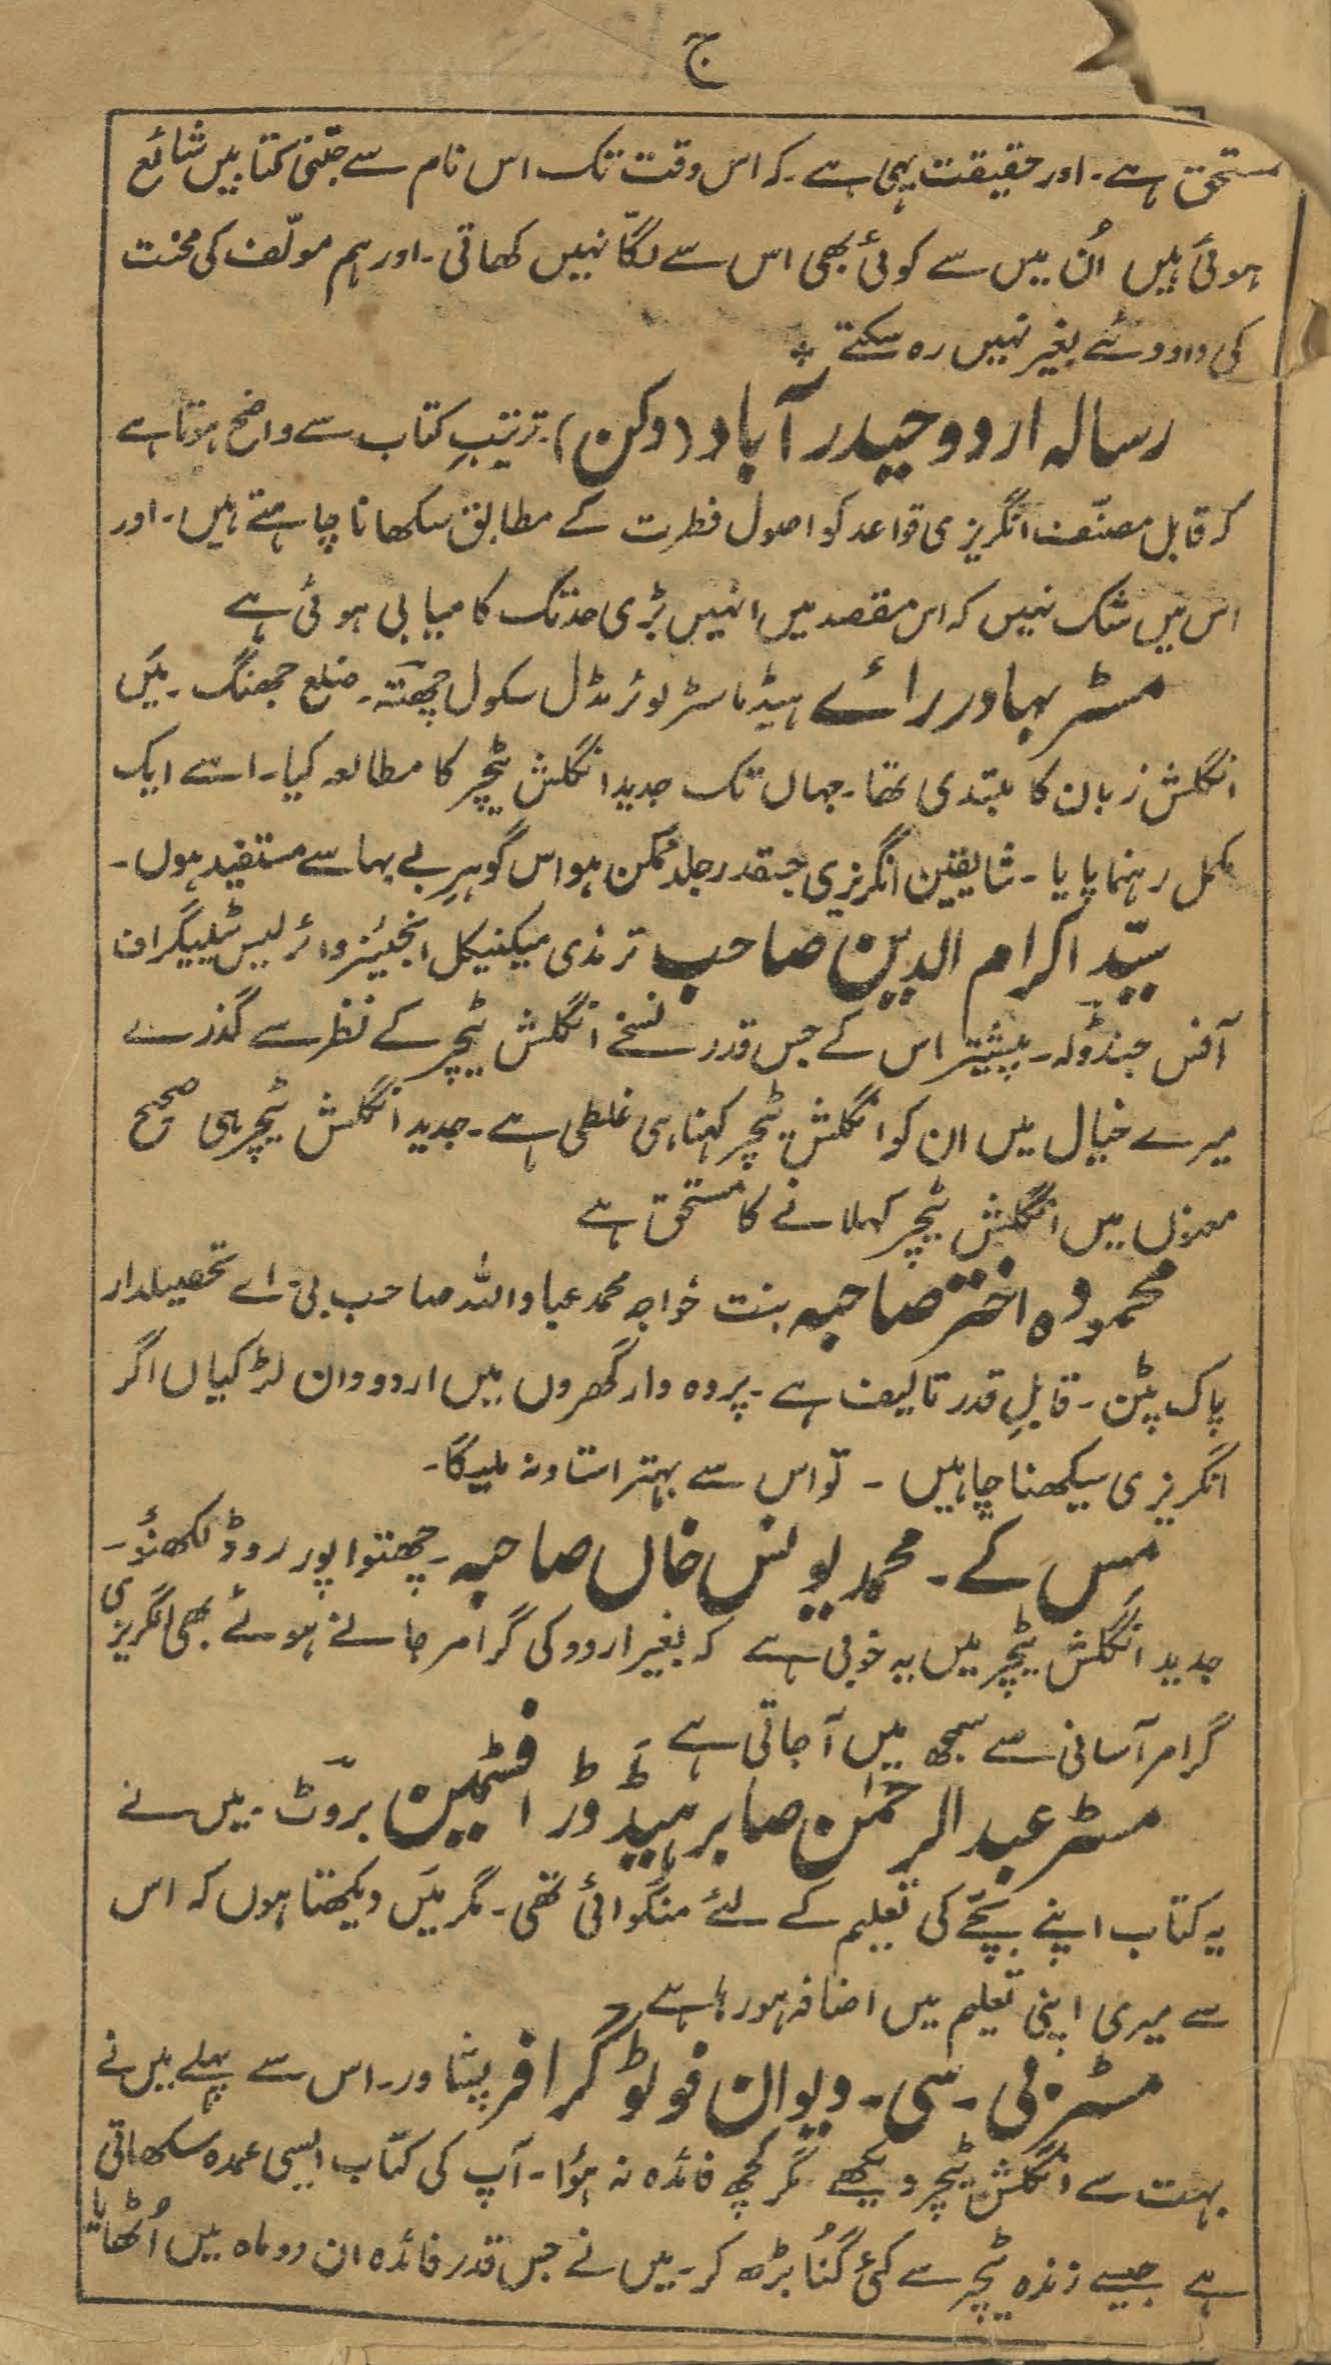 ج
مستحق ہے۔ اور حقیقت یہی ہے۔ کہ اس وقت تک اس نام سے جتنی کتابیں شائع
ہوئی ہیں اُن میں سے کوئی بھی اس سے لگّا نہیں کھاتی۔ اور ہم مولّف کی محنت
کی داد دئے بغیر نہیں رہ سکتے ٭
رسالہ اردو حیدر آباد (دکن)۔ ترتیبِ کتاب سے واضح ہوتا ہے
کہ قابل مصنّف انگریزی قواعد کو اصول فطرت کے مطابق سکھانا چاہتے ہیں۔ اور
اس میں شک نہیں کہ اس مقصد میں انہیں بڑی حد تک کامیابی ہوئی ہے
مسٹر بہادر رائے ہیڈ ماسٹر لوئر مڈل سکول چھتّہ۔ ضلع جھنگ۔ میَں
انگلش زبان کا مبتدی تھا۔ جہاں تک جدید انگلش ٹیچر کا مطالعہ کیا۔ اسے ایک
مکمل رہنما پایا۔ شایقین انگریزی جسقدر جلد ممکن ہو اس گوہرِ بے بہا سے مستفید ہوں۔
سیّد اکرام الدین صاحب ترمذی میکنیکل انجینئر وائرلیس ٹیلیگراف
آفس جنڈولہ۔ پیشتر اس کے جس قدر نسخے انگلش ٹیچر کے نظر سے گذرے
میرے خیال میں ان کو انگلش ٹیچر کہنا ہی غلطی ہے۔ جدید انگلش ٹیچر ہی صحیح
معنوں میں انگلش ٹیچر کہلانے کا مستحق ہے
محمودہ اختر صاحبہ بنت خواجہ محمد عباد اللہ صاحب بی۔ اے تحصیلدار
پاک پٹن۔ قابلِ قدر تالیف ہے۔ پردہ دار گھروں میں اردو دان لڑکیاں اگر
انگریزی سیکھنا چاہیں۔ تو اس سے بہتر استاد نہ ملیگا۔
مس کے۔ محمد یونس خاں صاحبہ۔ چھتوا پور روڈ لکھنؤ۔
جدید انگلش ٹیچر میں یہ خوبی ہے کہ بغیر اردو کی گرامر جانے ہوئے بھی انگریزی
گرامر آسانی سے سمجھ میں آ جاتی ہے
مسٹر عبد الرحمٰن صابر ہیڈ ڈرافٹسمین بروٹ۔ میں نے
یہ کتاب اپنے بچّے کی تعلیم کے لئے منگوائی تھی۔ مگر میَں دیکھتا ہوں کہ اس
سے میری اپنی تعلیم میں اضافہ ہو رہا ہے
مسٹر پی۔ سی۔ دیوان فوٹو گرافر پشاور۔ اس سے پہلے میں نے
بہت سے انگلش ٹیچر دیکھے مگر کچھ فائدہ نہ ہؤا۔ آپ کی کتاب ایسی عمدہ سکھاتی
ہے جیسے زندہ ٹیچر سے کئی گنُا بڑھ کر۔ میں نے جس قدر فائدہ ان دو ماہ میں اُٹھایا